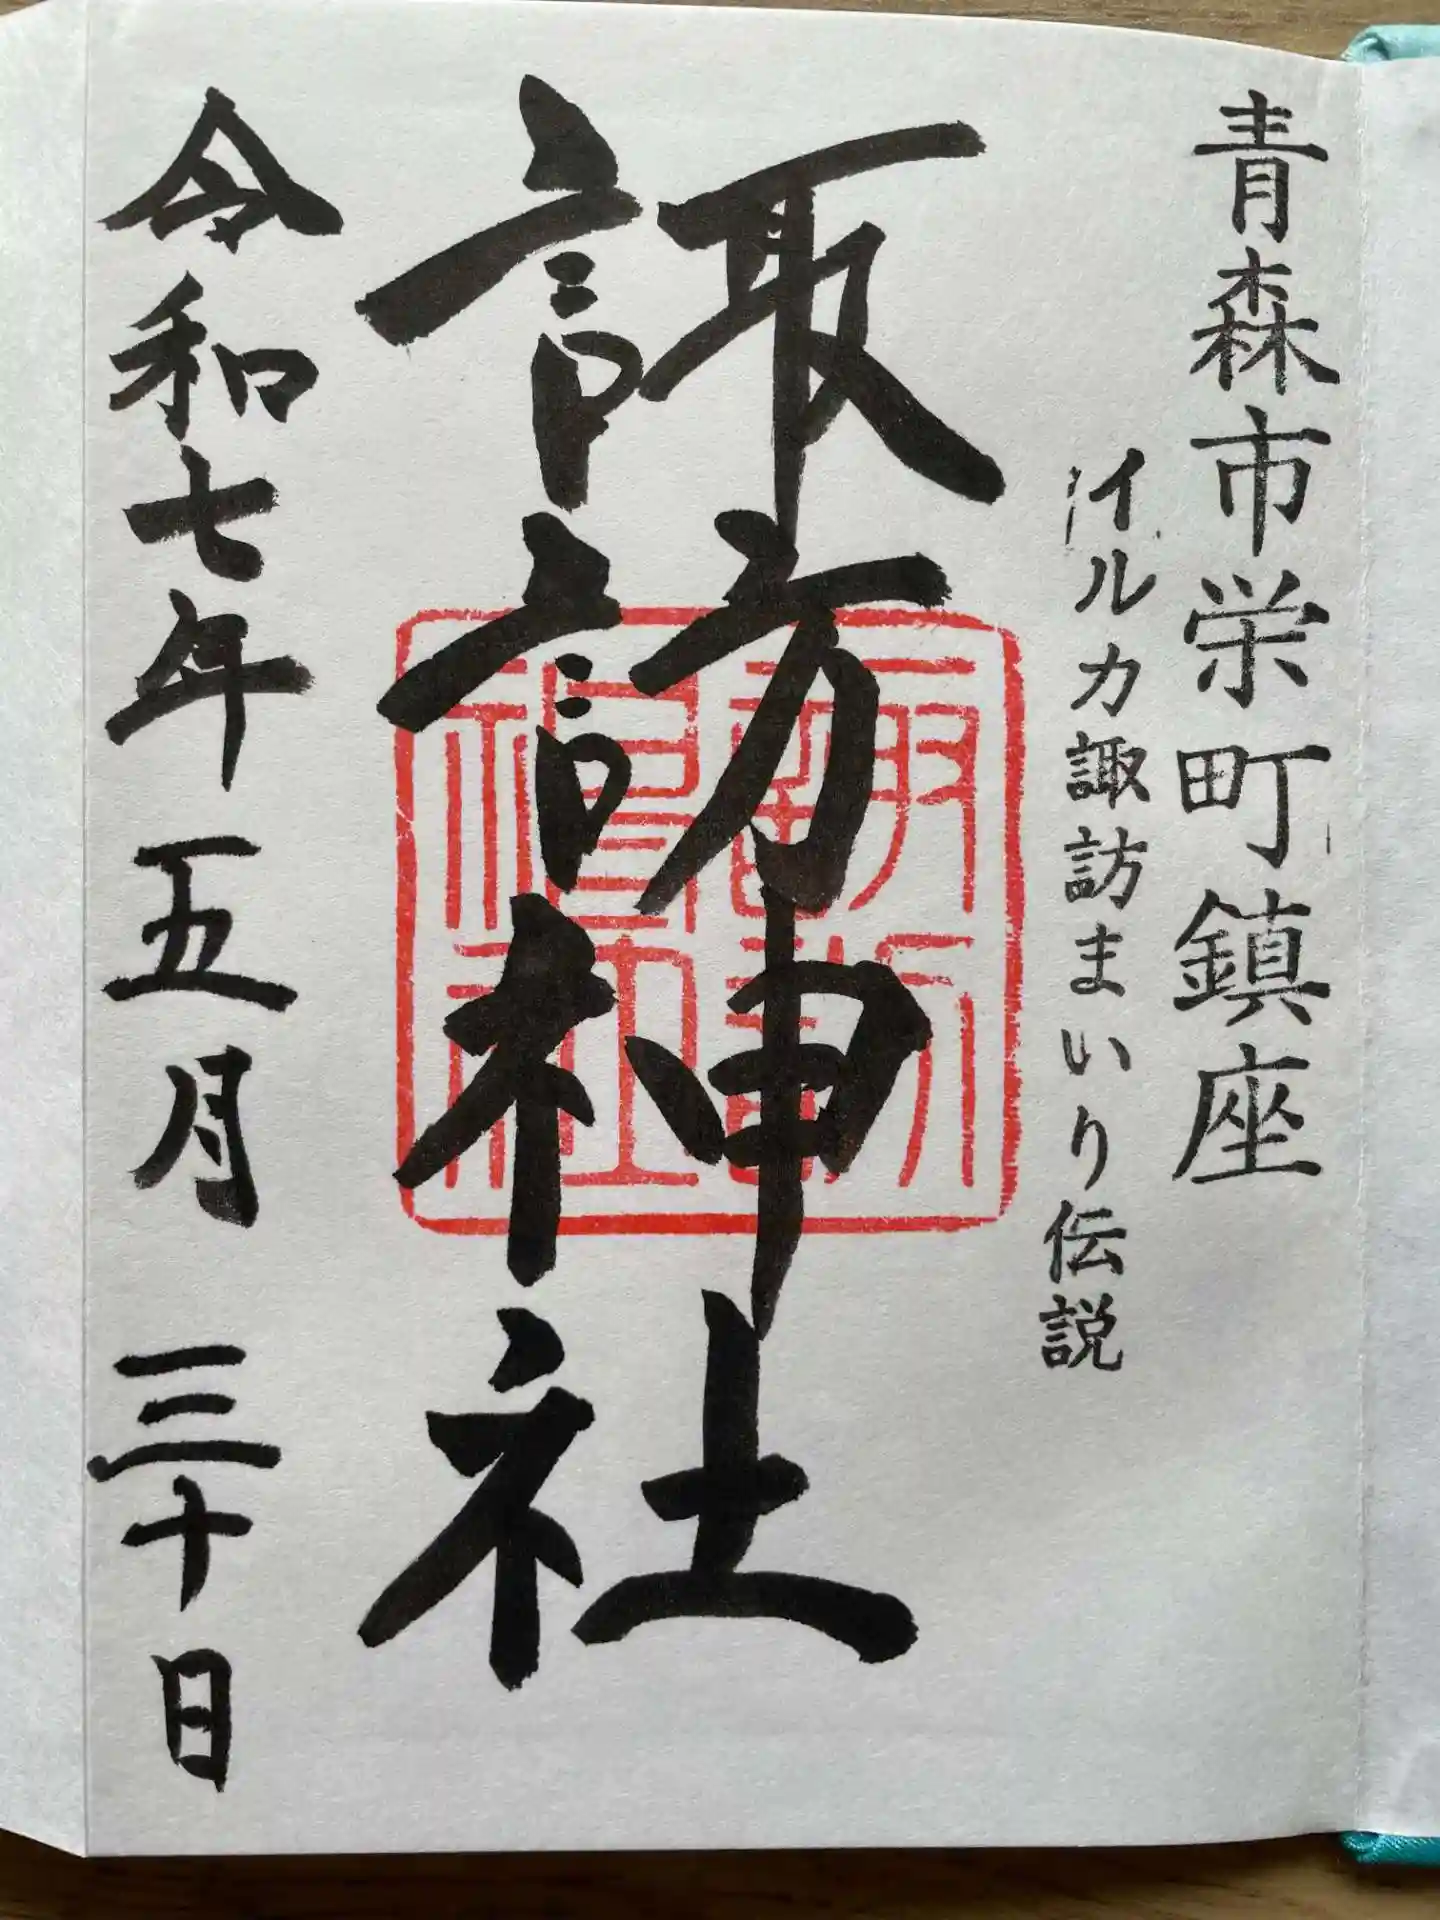 青森市栄町鎮座
イルカ諏訪まいり伝説
諏訪神社
諏訪神社
令和七年五月三十日